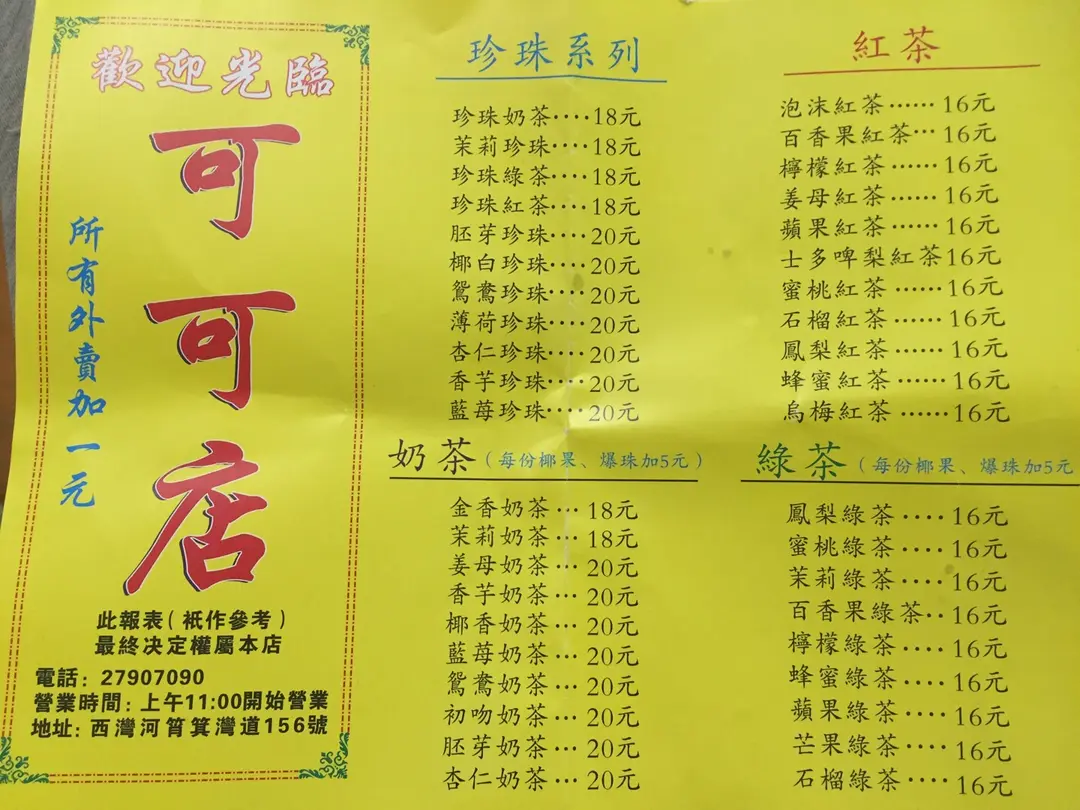 歡迎光臨
可可店
所有外賣加一元
此報表（衹作參考）
最終决定權屬本店
電話：27907090
營業時間：上午11:00開始營業
地址：西灣河筲箕灣道156號
珍珠系列
珍珠奶茶····18元
茉莉珍珠····18元
珍珠綠茶····18元
珍珠紅茶····18元
胚芽珍珠····20元
椰白珍珠····20元
鴛鴦珍珠····20元
薄荷珍珠····20元
杏仁珍珠····20元
香芋珍珠····20元
藍莓珍珠····20元
奶茶（每份椰果、爆珠加5元）
金香奶茶···18元
茉莉奶茶···18元
姜母奶茶···20元
香芋奶茶···20元
椰香奶茶···20元
藍莓奶茶···20元
鴛鴦奶茶···20元
初吻奶茶···20元
胚芽奶茶···20元
杏仁奶茶···20元
紅茶
泡沫紅茶······16元
百香果紅茶···16元
檸檬紅茶······16元
姜母紅茶······16元
蘋果紅茶······16元
士多啤梨紅茶16元
蜜桃紅茶······16元
石榴紅茶······16元
鳳梨紅茶······16元
蜂蜜紅茶······16元
烏梅紅茶······16元
綠茶（每份椰果、爆珠加5元
鳳梨綠茶····16元
蜜桃綠茶····16元
茉莉綠茶····16元
百香果綠茶··16元
檸檬綠茶····16元
蜂蜜綠茶····16元
蘋果綠茶····16元
芒果綠茶····16元
石榴綠茶····16元